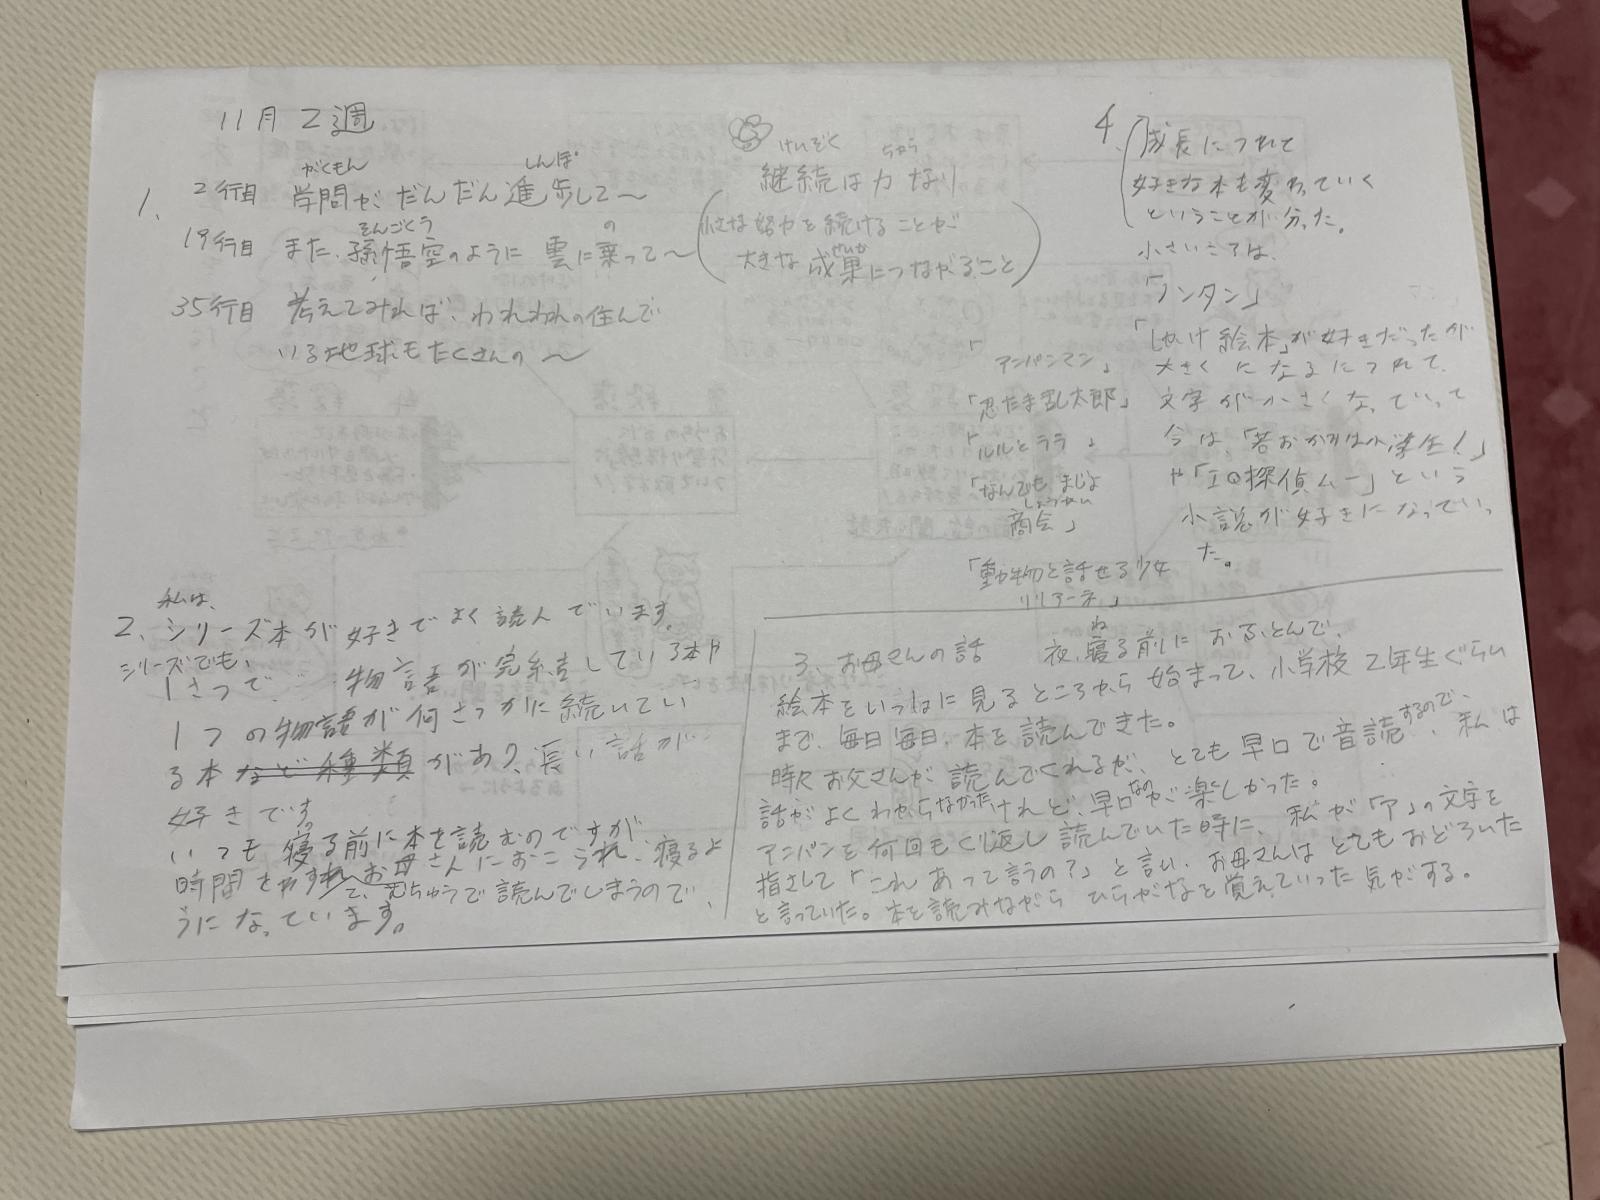 11月2週
1、
がくもん しんぽ
2行目 学問が だんだん進歩して〜
そんごくう の
19行目 また、孫悟空のように 雲に乗って〜
35行目 考えてみれば、われわれの住んで
いる地球もたくさんの〜
けいぞく ちから
継続は力なり
(小さな努力を続けることが
せいか
大きな成果につながること)
2、私は、
シリーズ本が好きでよく読んでいます。
シリーズでも、
1さつで 物語が完結している本や
1つの物語が何さつかに続いてい
る本など種類があり、長い話が
好きです。
いつも寝る前に本を読むのですが
時間をわすれて、むちゅうで読んでしまうので、
お母さんにおこられ、寝るよ
うになっています。
3、お母さんの話
ね
夜、寝る前に おふとんで、
絵本をいっしょに見るところから始まって、小学校2年生ぐらい
まで、毎日毎日、本を読んできた。
時々お父さんが読んでくれるが、とても早口で音読するので、私は
話がよくわからなかったけれど、早口なのが楽しかった。
アンパンを何回もくり返し読んでいた時に、私が「ア」の文字を
指さして「これあって言うの?」と言い、お母さんはとてもおどろいた
と言っていた。本を読みながら ひらがなを覚えていった気がする。
4、成長につれて
好きな本も変わっていく
ということが分かった。
小さいころは、
「ノンタン」
「しかけ絵本」が好きだったが
大きくになるにつれて、
文字が小さくなっていって
今は、「若おかみは小学生!」
や「IQ探偵ムー」という
小説が好きになっていっ
た。
「アンパンマン」
「忍たま乱太郎」
「ルルとララ」
「なんでもまじょ
しょうかい
商会」
「動物と話せる少女
リリアーネ」